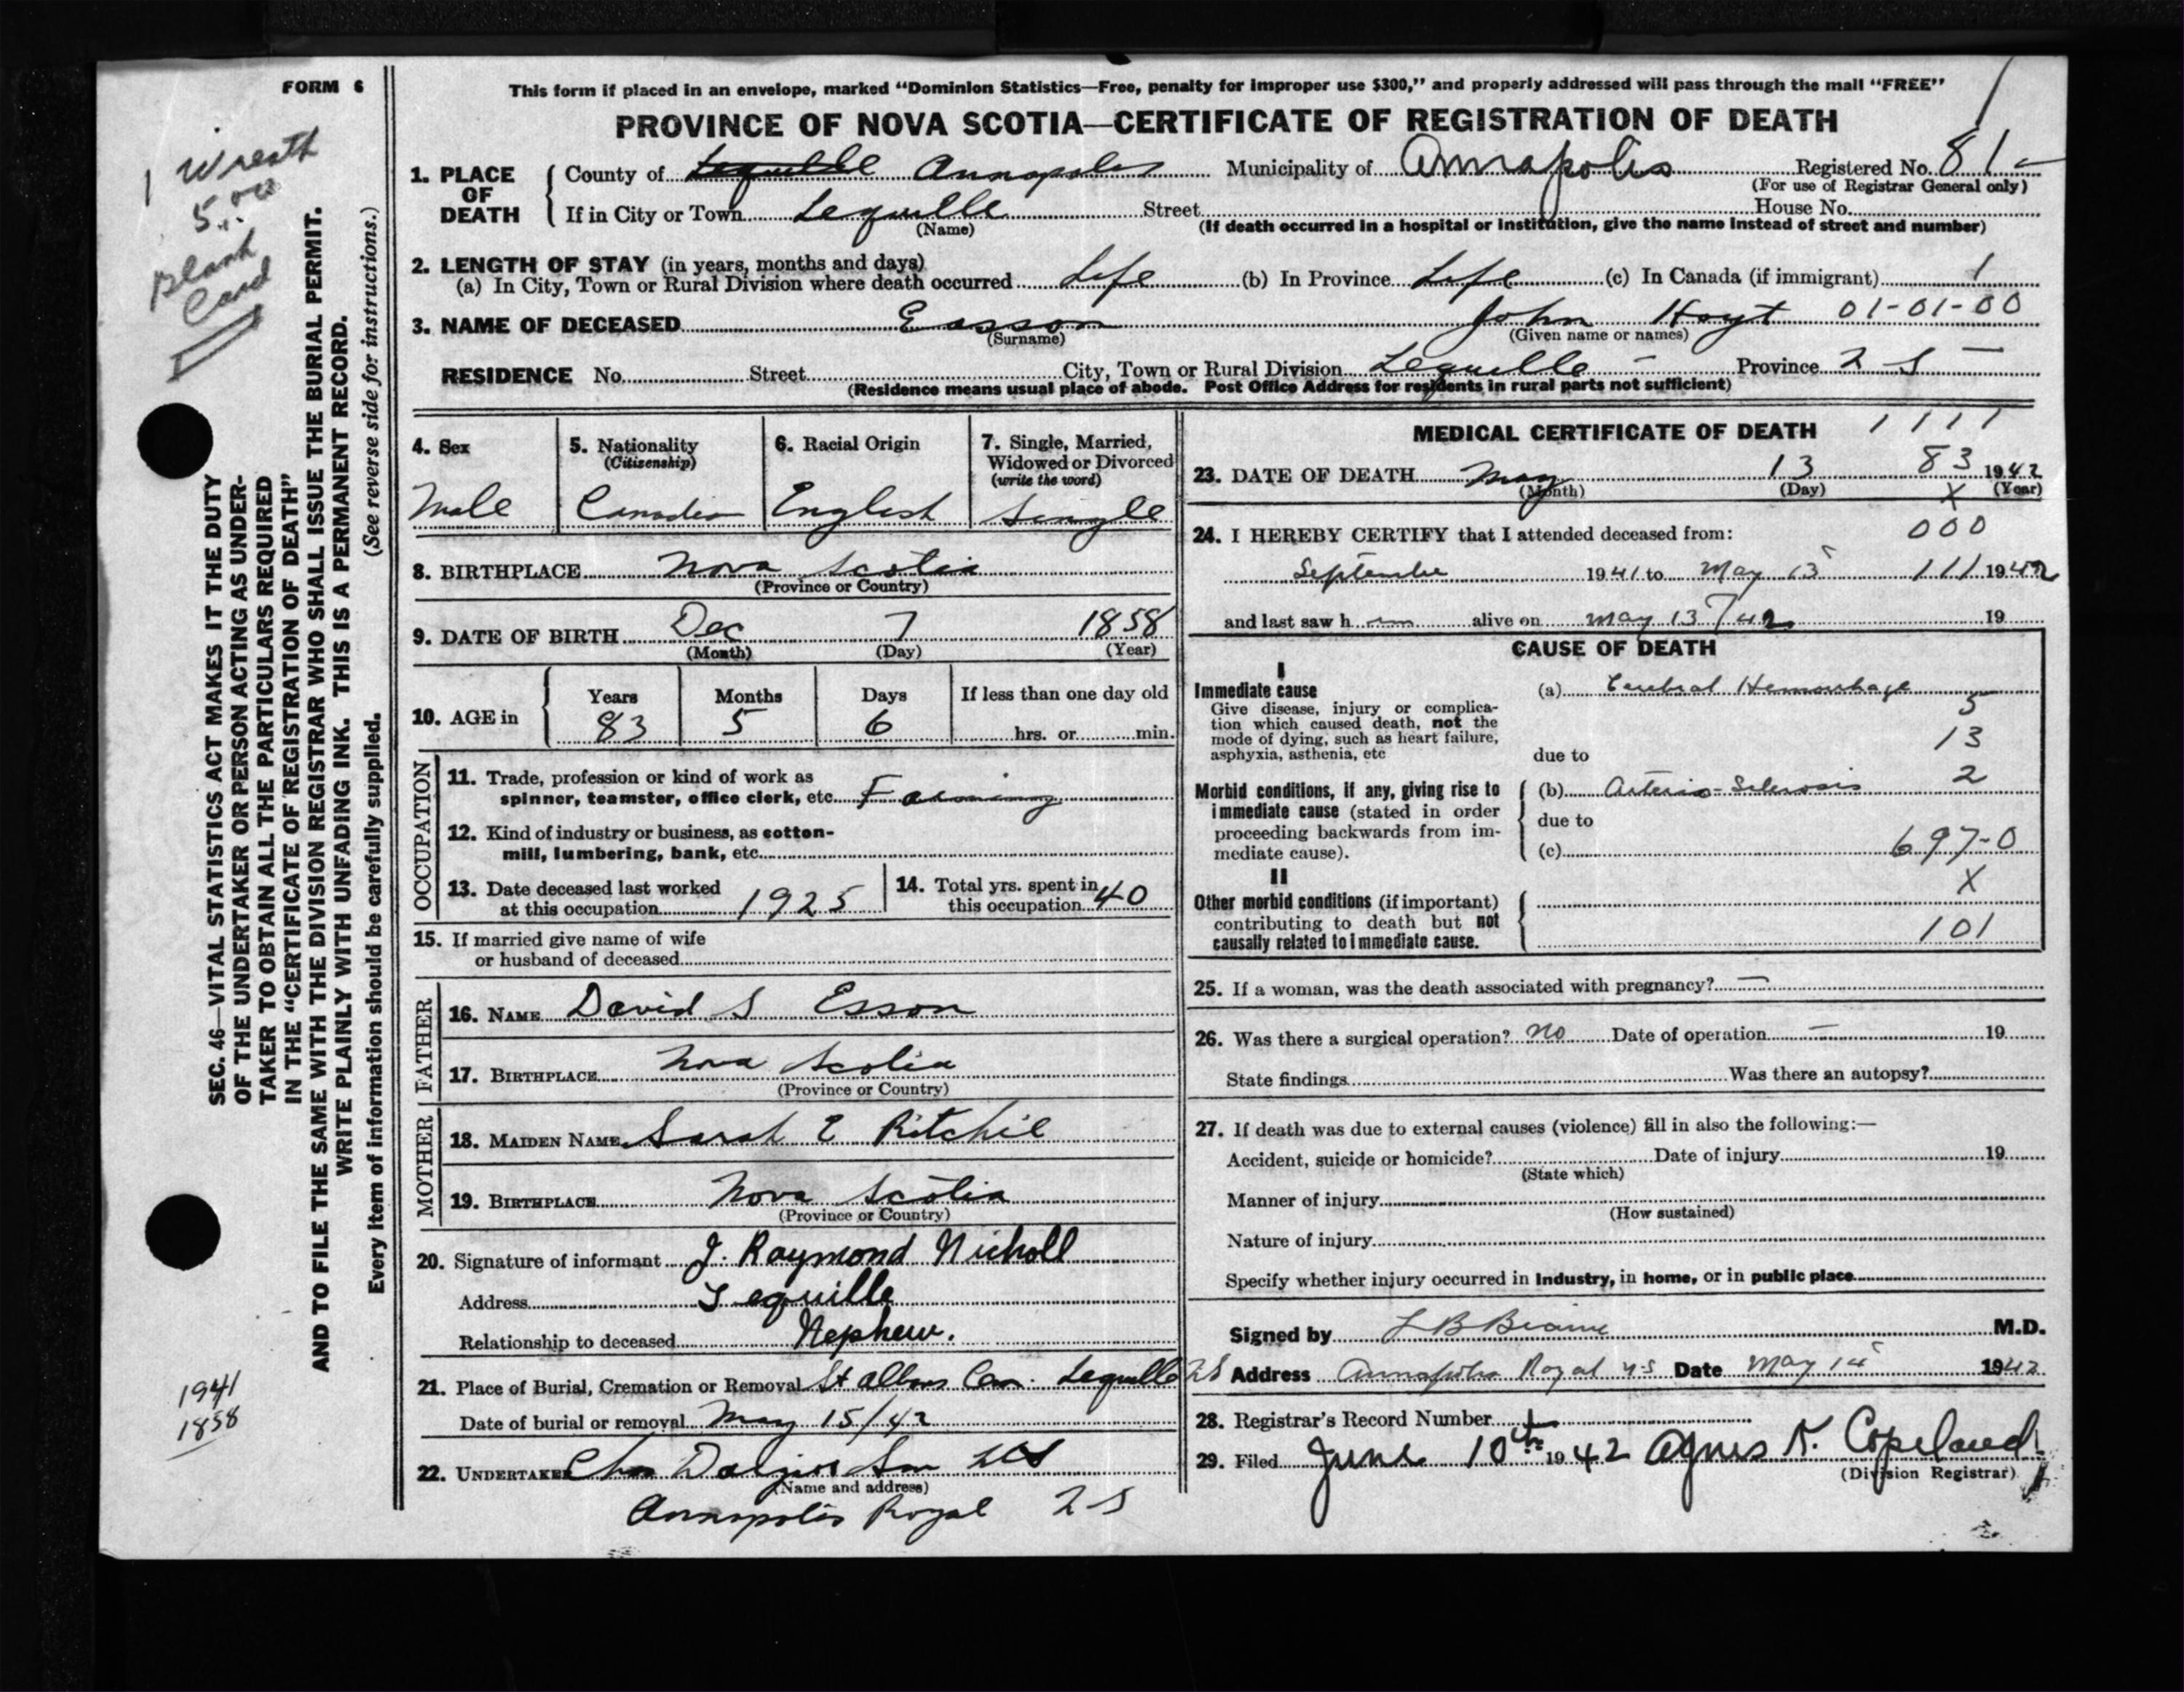 FORM 6
This form if placed in an envelope, marked "Dominion Statistics—Free, penalty for improper use $300," and properly addressed will pass through the mail "FREE"
PROVINCE OF NOVA SCOTIA—CERTIFICATE OF REGISTRATION OF DEATH
1 Wreath
5.00
Blank
Card
SEC. 46—VITAL STATISTICS ACT MAKES IT THE DUTY
OF THE UNDERTAKER OR PERSON ACTING AS UNDER-
TAKER TO OBTAIN ALL THE PARTICULARS REQUIRED
IN THE "CERTIFICATE OF REGISTRATION OF DEATH"
AND TO FILE THE SAME WITH THE DIVISION REGISTRAR WHO SHALL ISSUE THE BURIAL PERMIT.
WRITE PLAINLY WITH UNFADING INK. THIS IS A PERMANENT RECORD.
Every item of information should be carefully supplied. (See reverse side for instructions.)
1941
1858
1. PLACE OF DEATH County of Lequille Annapolis Municipality of Annapolis Registered No. 81
(For use of Registrar General only)
If in City or Town Lequille Street House No.
(Name) (If death occurred in a hospital or institution, give the name instead of street and number)
2. LENGTH OF STAY (in years, months and days)
(a) In City, Town or Rural Division where death occurred Life (b) In Province Life (c) In Canada (if immigrant) 1
3. NAME OF DECEASED Easson John Hoyt 01-01-00
(Surname) (Given name or names)
RESIDENCE No. Street City, Town or Rural Division Lequille - Province 2 S -
(Residence means usual place of abode. Post Office Address for residents in rural parts not sufficient)
4. Sex 5. Nationality 6. Racial Origin 7. Single, Married,
(Citizenship) Widowed or Divorced
(write the word)
Male Canadian English Single
8. BIRTHPLACE Nova Scotia
(Province or Country)
9. DATE OF BIRTH Dec 7 1858
(Month) (Day) (Year)
10. AGE in Years Months Days If less than one day old
83 5 6 hrs. or min.
OCCUPATION
11. Trade, profession or kind of work as
spinner, teamster, office clerk, etc. Farming
12. Kind of industry or business, as cotton-
mill, lumbering, bank, etc.
13. Date deceased last worked 14. Total yrs. spent in
at this occupation 1925 this occupation 40
15. If married give name of wife
or husband of deceased
FATHER
16. NAME David S Esson
17. BIRTHPLACE Nova Scotia
(Province or Country)
MOTHER
18. MAIDEN NAME Sarah E Ritchie
19. BIRTHPLACE Nova Scotia
(Province or Country)
20. Signature of informant J. Raymond Nicholl
Address Lequille
Relationship to deceased Nephew.
21. Place of Burial, Cremation or Removal St Albans Cem. Lequille NS
Date of burial or removal May 15/42
22. UNDERTAKER Chas Son
(Name and address)
Annapolis Royal N S
MEDICAL CERTIFICATE OF DEATH 1 1 1 1
23. DATE OF DEATH May 13 83 1942
(Month) (Day) X (Year)
24. I HEREBY CERTIFY that I attended deceased from: 000
September 1941 to May 13 111 1942
and last saw h im alive on May 13/42 19
CAUSE OF DEATH
I
Immediate cause (a) Cerebral Hemorrhage
Give disease, injury or complica- 5
tion which caused death, not the
mode of dying, such as heart failure, 13
asphyxia, asthenia, etc due to
2
Morbid conditions, if any, giving rise to (b) Arterio-Sclerosis
immediate cause (stated in order due to
proceeding backwards from im- 697-0
mediate cause). (c)
II X
Other morbid conditions (if important)
contributing to death but not 101
causally related to immediate cause.
25. If a woman, was the death associated with pregnancy? —
26. Was there a surgical operation? no Date of operation — 19
State findings Was there an autopsy?
27. If death was due to external causes (violence) fill in also the following:—
Accident, suicide or homicide? Date of injury 19
(State which)
Manner of injury
(How sustained)
Nature of injury
Specify whether injury occurred in industry, in home, or in public place
Signed by L B M.D.
Address Annapolis Royal NS Date May 14 1942
28. Registrar's Record Number
29. Filed June 10th 1942 Agnes K. Copeland
(Division Registrar)